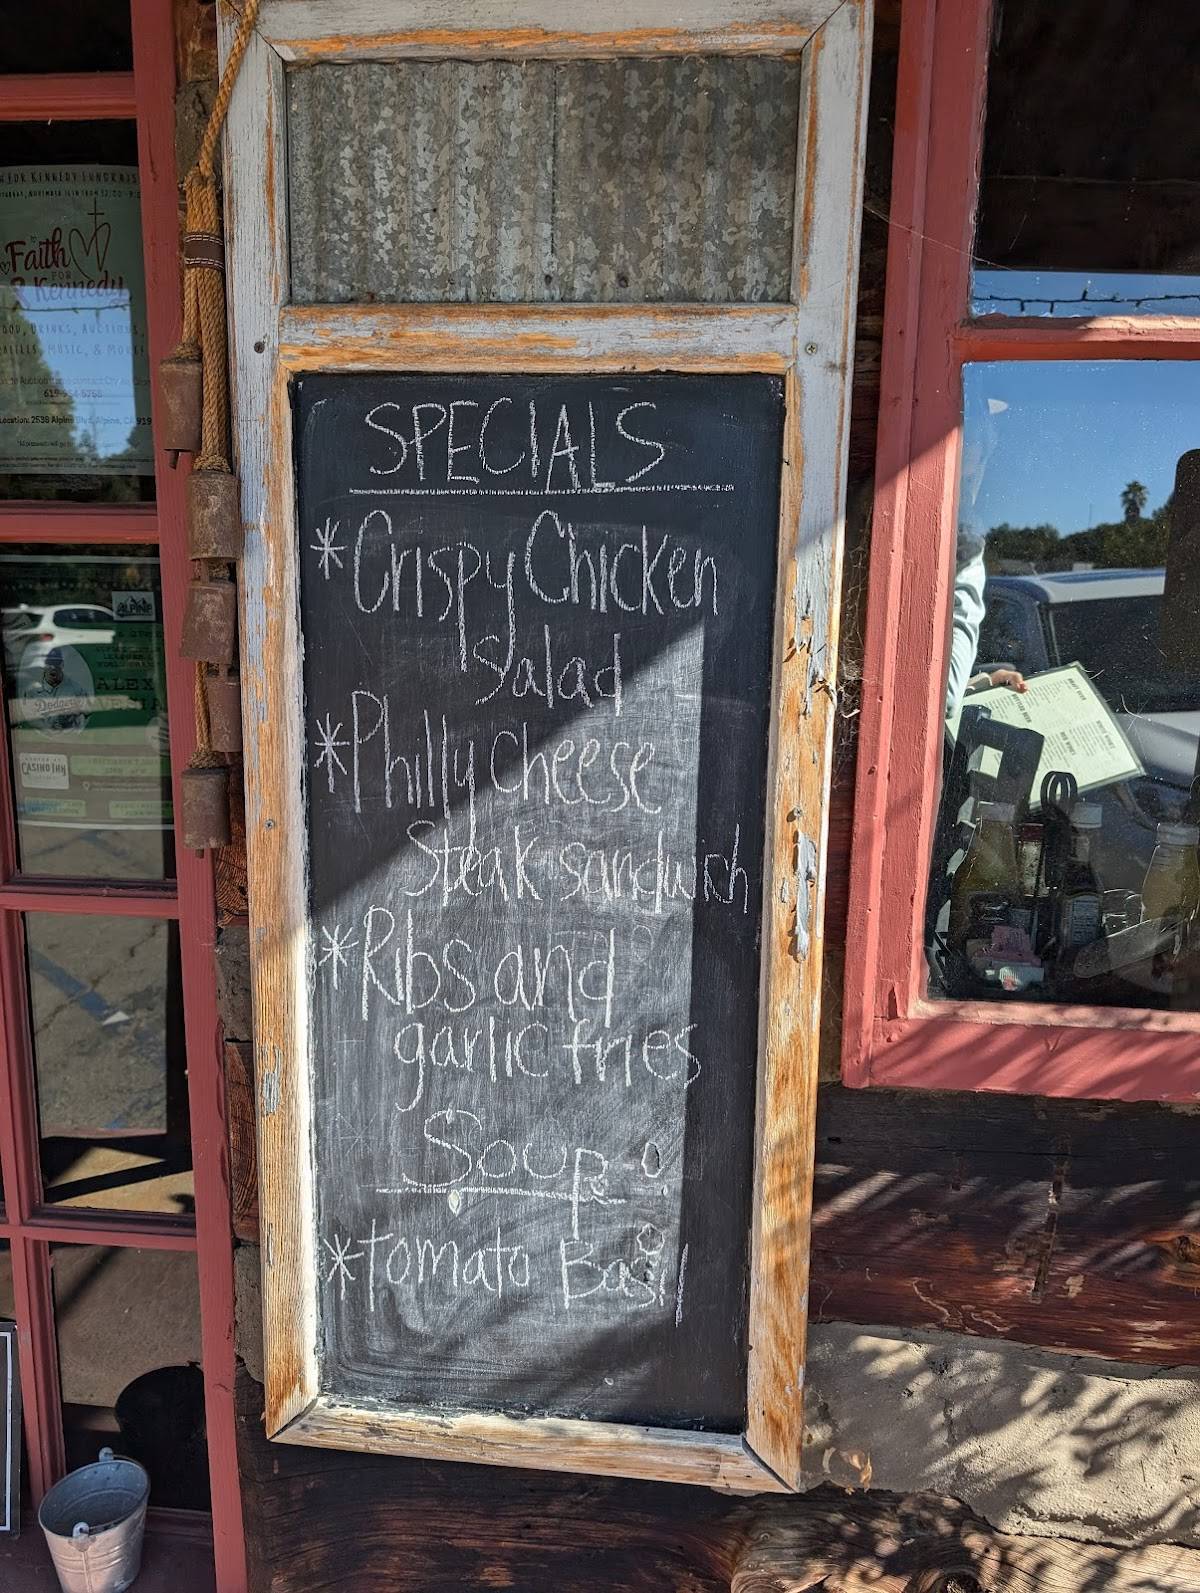 SPECIALS
*Crispy Chicken
Salad
*Philly cheese
Steak sandwich
*Ribs and
garlic fries
Soup
*tomato Basil
FOR KENNEDY FUNDRAIS
Faith
FOR
Kennedy
MUSIC, & MORE
Location: 2538 Alpine Blvd, Alpine, CA 919
ALPINE
ALEX
Dodgers
CASINO INN